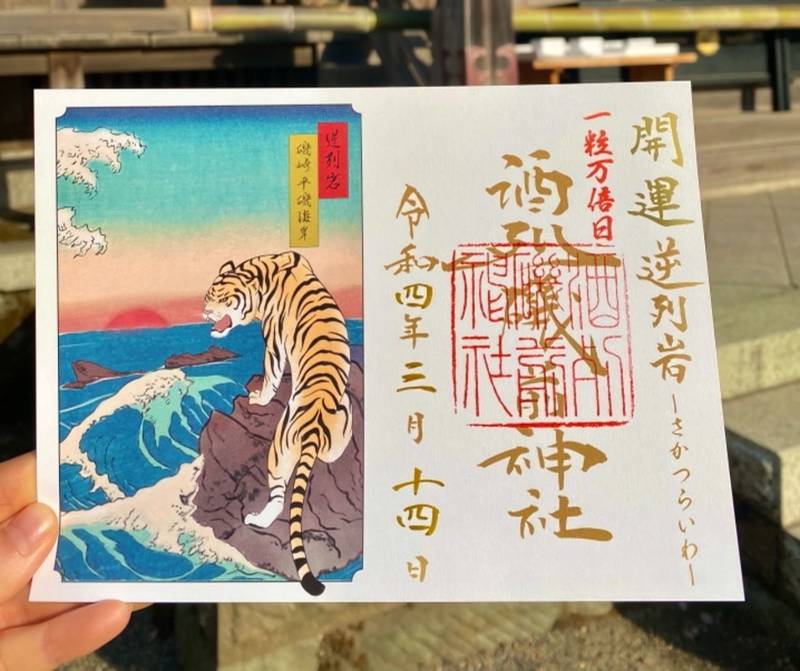 開運 逆列岩
ーさかつらいわー
一粒万倍日
酒列磯前神社
酒列
磯前
神社
令和四年三月十四日
逆列岩
磯崎 平磯海岸